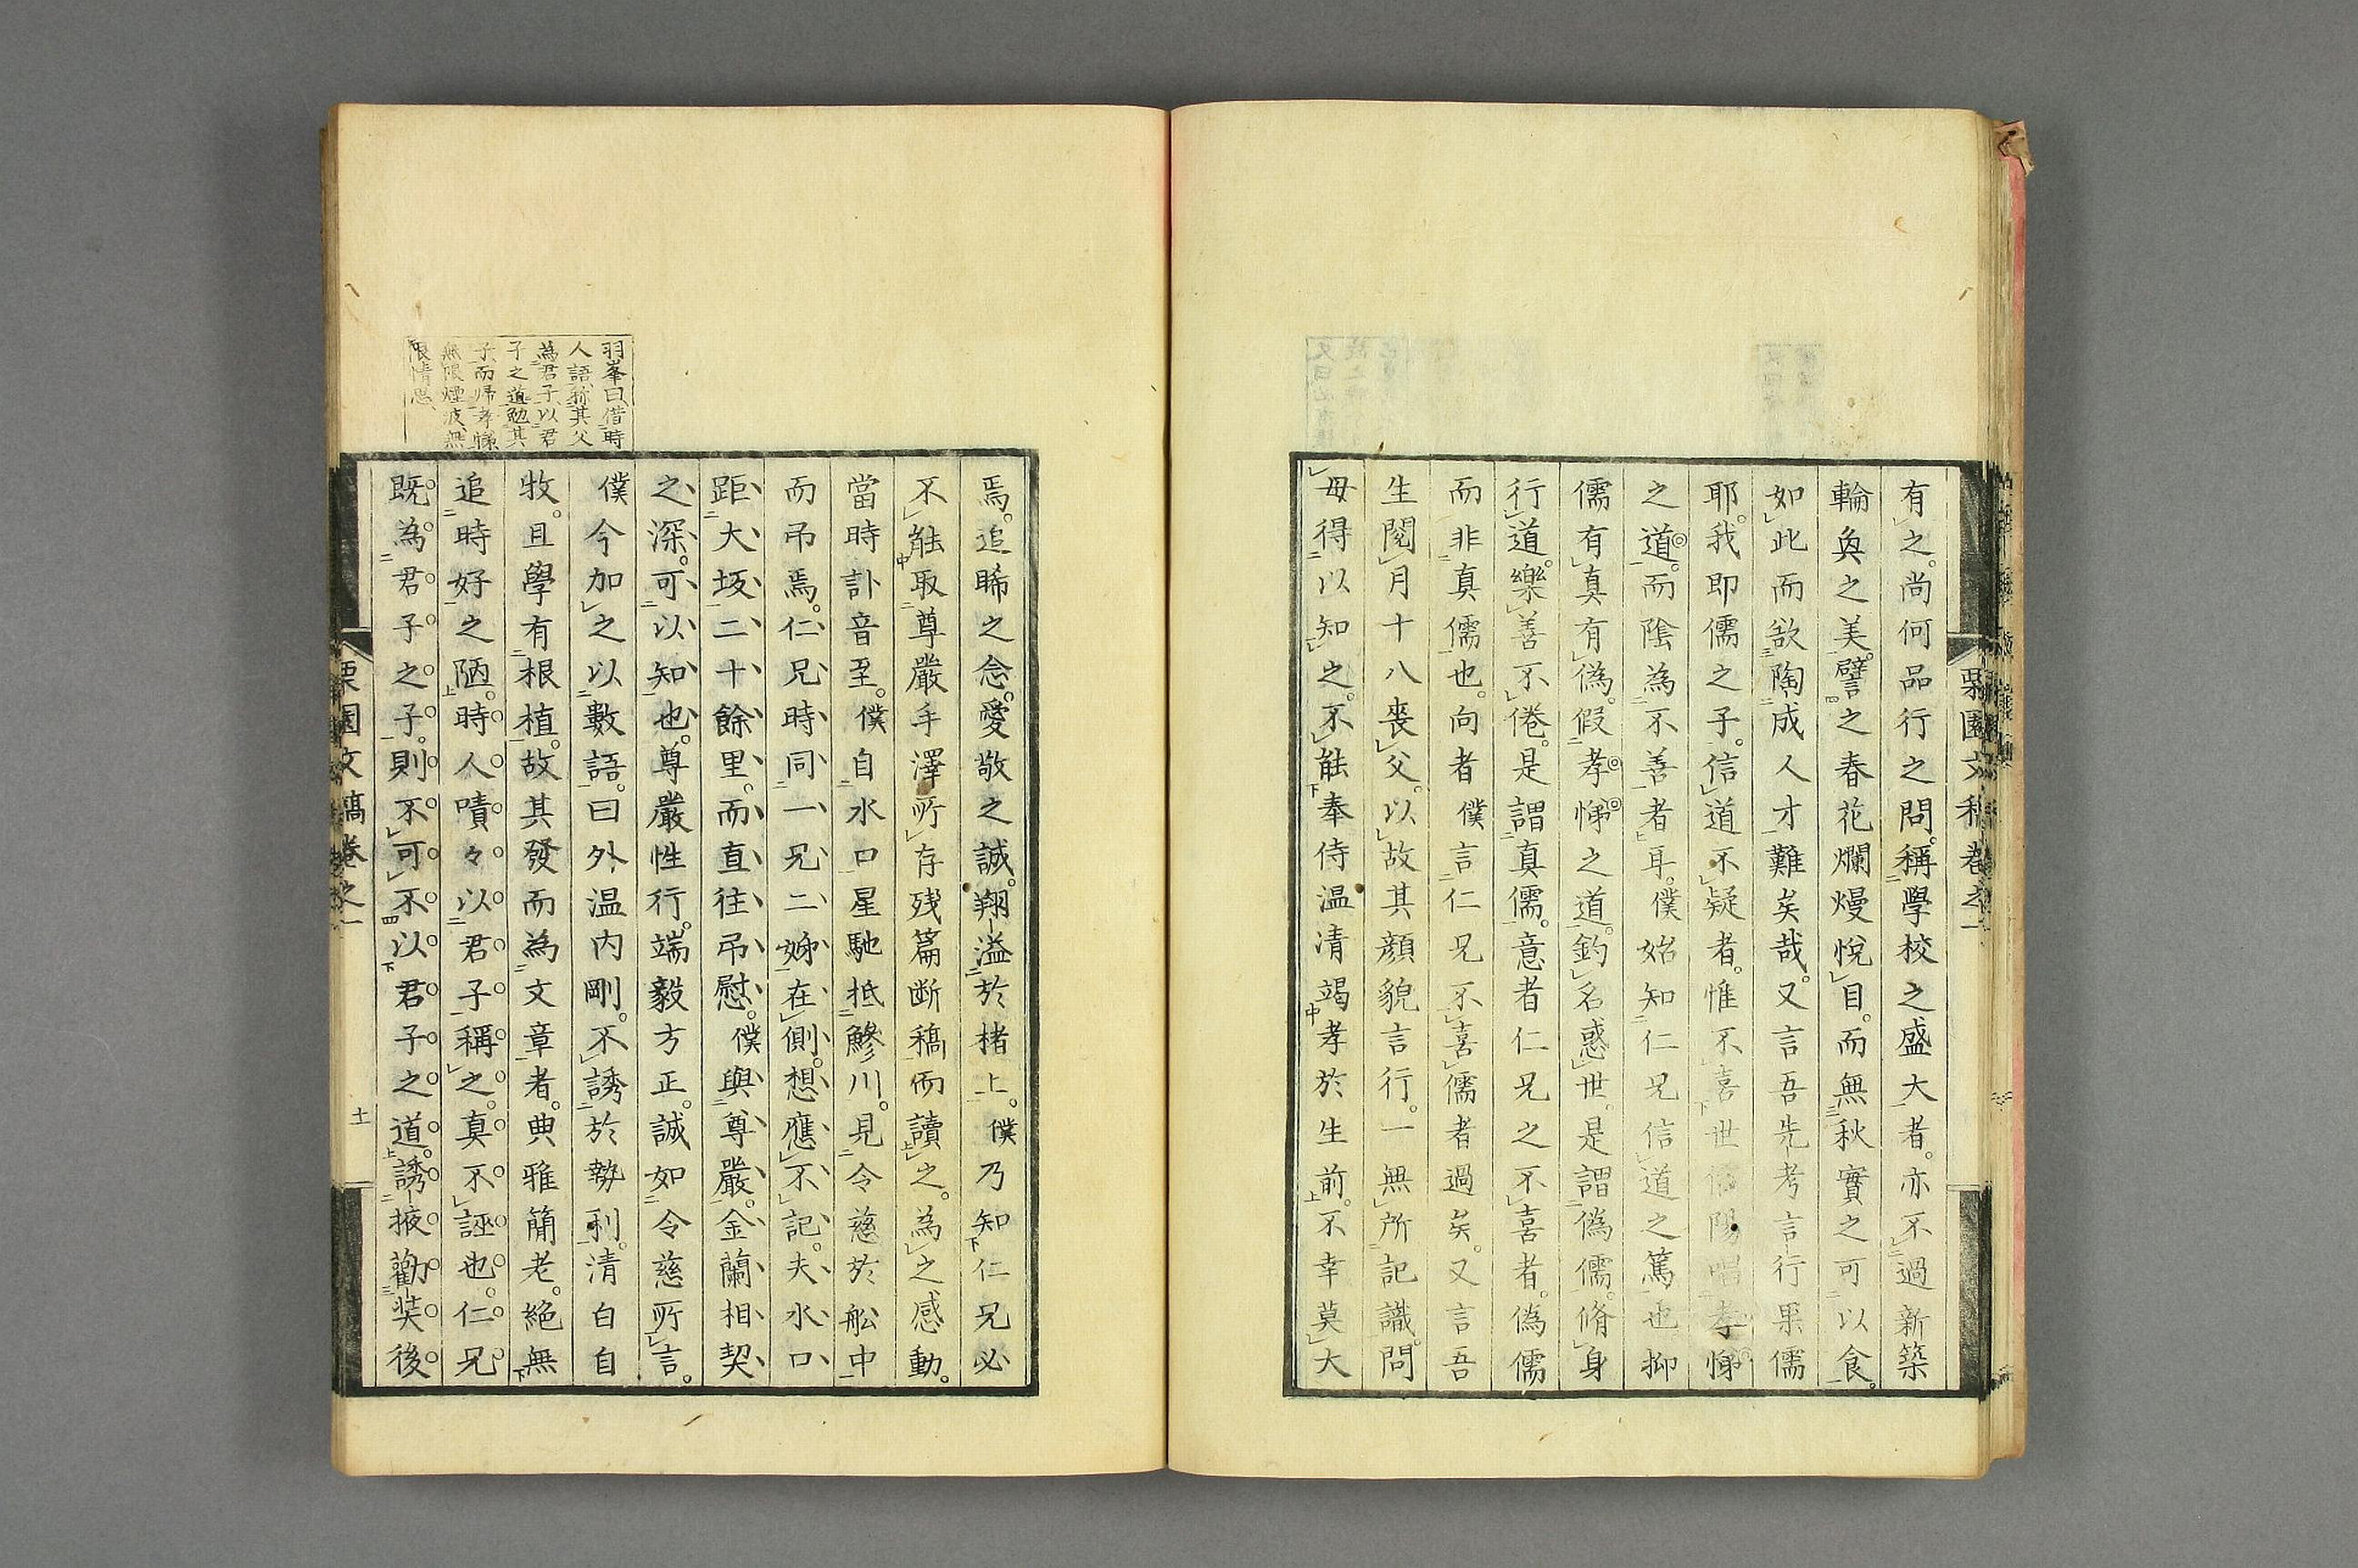 有之。尚何品行之問。稱學校之盛大者。亦不過新築
輪奐之美。譬之春花爛熳悅目。而無秋實之可以食。
如此而欲陶成人才難矣哉。又言吾先考言行果儒
耶。我即儒之子。信道不疑者。惟不喜世儒陽唱孝悌
之道。而陰為不善者耳。僕始知仁兄信道之篤也抑
儒有真有偽。假孝悌之道。釣名惑世。是謂偽儒。脩身
行道。樂善不倦。是謂真儒。意者仁兄之不喜者。偽儒
而非真儒也。向者僕言仁兄不喜儒者過矣。又言吾
生閱月十八喪父。以故其顏貌言行。一無所記識。問
母得以知之。不能奉侍温清竭孝於生前。不幸莫大
栗園文稿卷之一
焉。追晞之念。愛敬之誠。翔溢於楮上。僕乃知仁兄必
不能取尊嚴手澤所存残篇断稿而讀之。為之感動。
當時訃音至。僕自水口星馳抵鰺川。見令慈於舩中
而吊焉。仁兄時同一兄二姊在側。想應不記。夫水口
距大坂二十餘里。而直往吊慰。僕與尊嚴。金蘭相契
之深。可以知也。尊嚴性行。端毅方正。誠如令慈所言。
僕今加之以數語。曰外温内剛。不誘於勢利。清白自
牧。且學有根植。故其發而為文章者。典雅簡老。絶無
追時好之陋。時人嘖々以君子稱之。真不誣也。仁兄
既為君子之子。則不可不以君子之道。誘掖勸奨後
羽峯曰、借時
人語、称其父
為君子、以君
子之道勉其
子、而帰孝悌
無限煙波、無
限情思、
栗園文稿卷之一
十一